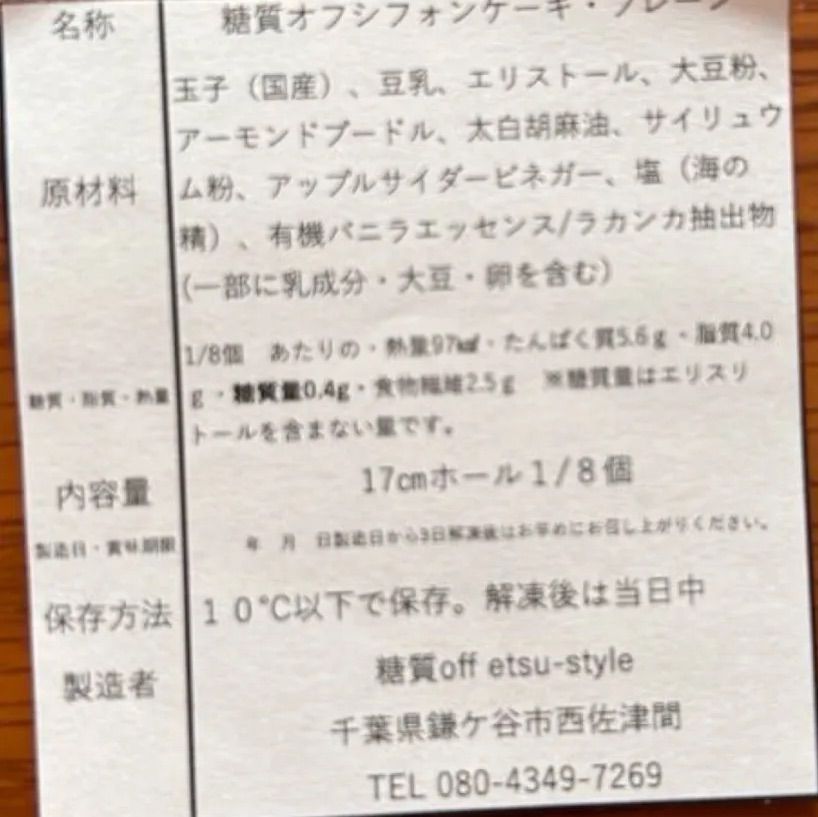 名称 糖質オフシフォンケーキ・プレーン
玉子（国産）、豆乳、エリストール、大豆粉、
アーモンドプードル、太白胡麻油、サイリュウ
原材料 ム粉、アップルサイダービネガー、塩（海の
精）、有機バニラエッセンス/ラカンカ抽出物
(一部に乳成分・大豆・卵を含む)
1/8個 あたりの・熱量97㎉・たんぱく質5.6ｇ・脂質4.0
糖質・脂質・熱量 ｇ・糖質量0.4g・食物繊維2.5ｇ ※糖質量はエリスリ
トールを含まない量です。
内容量 17㎝ホール１/８個
製造日・賞味期限 年 月 日製造日から3日解凍後はお早めにお召し上がりください。
保存方法 １０℃以下で保存。解凍後は当日中
製造者 糖質off etsu-style
千葉県鎌ケ谷市西佐津間
TEL 080-4349-7269